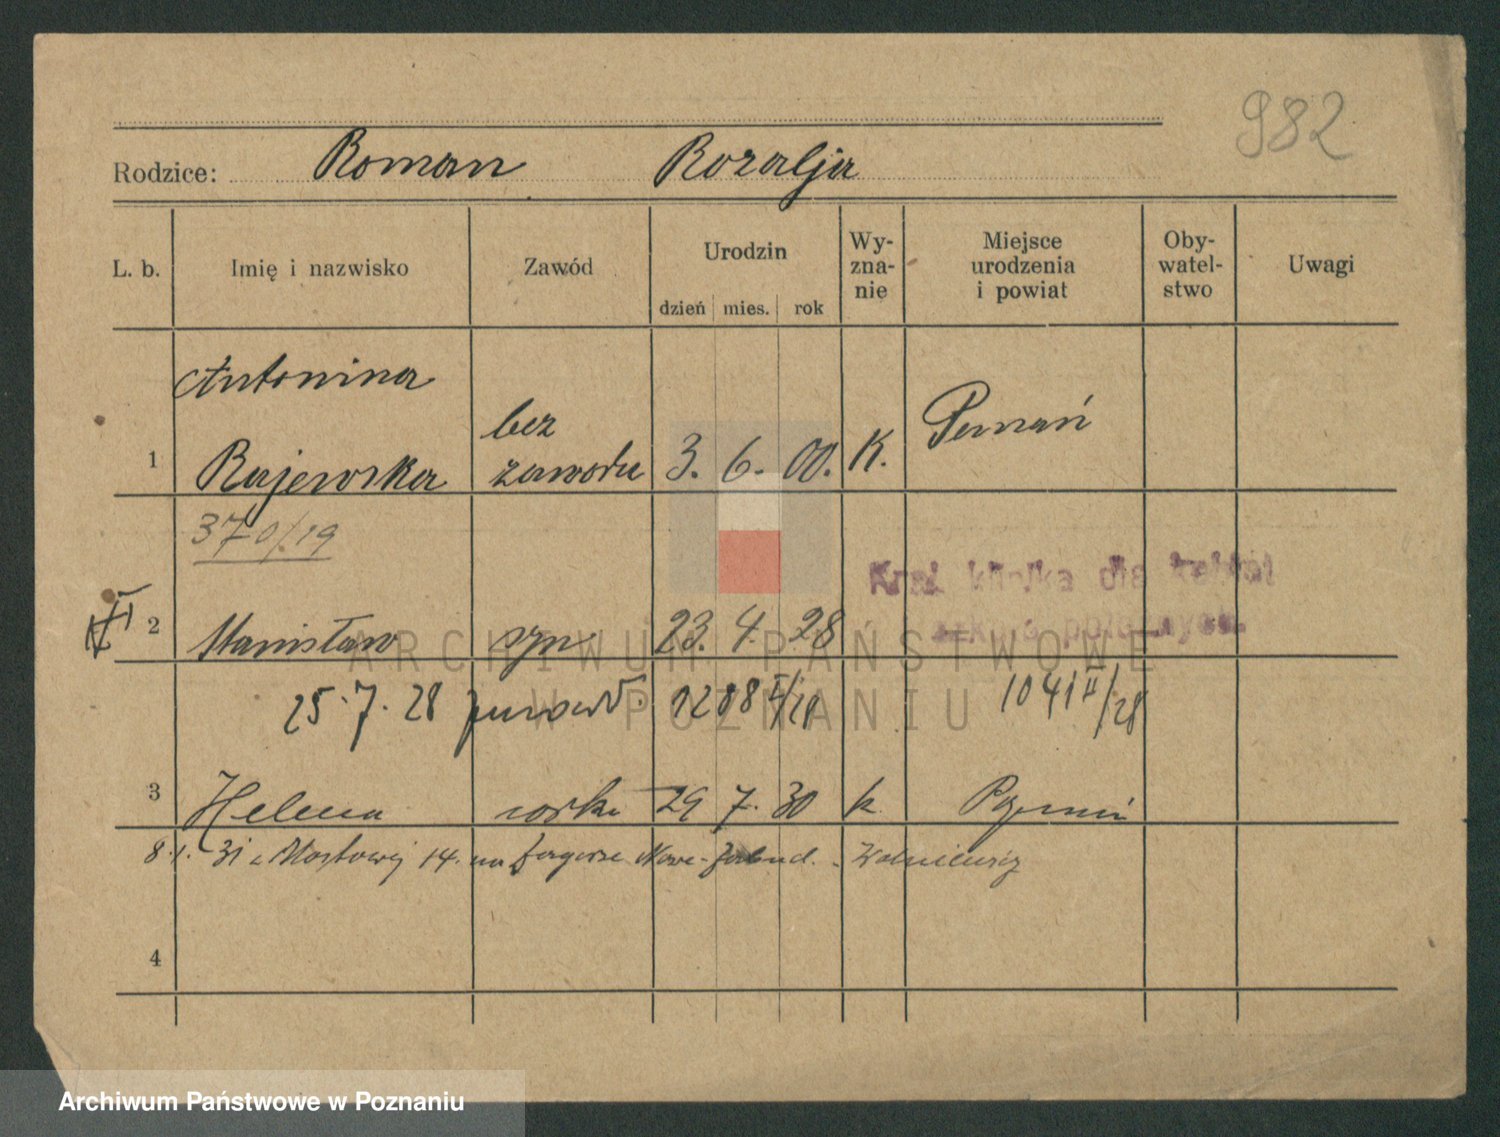 982
Rodzice: Roman Rozalja
L. b. Imię i nazwisko Zawód Urodzin dzień mies. rok Wy-zna-nie Miejsce urodzenia i powiat Oby-watel-stwo Uwagi
Antonina
bez Poznań
1 Rajewska zawodu 3. 6. 00. K.
370/19
Kraj. klinika dla kobiet
2 Stanisław syn 23. 4. 28
25. 7. 28 1041 II/28
3 Helena córka 29 7. 30 k. Poznań
8. 1. 31 z Mostowej 14. na
4
ARCHIWUM PAŃSTWOWE
W POZNANIU
Archiwum Państwowe w Poznaniu